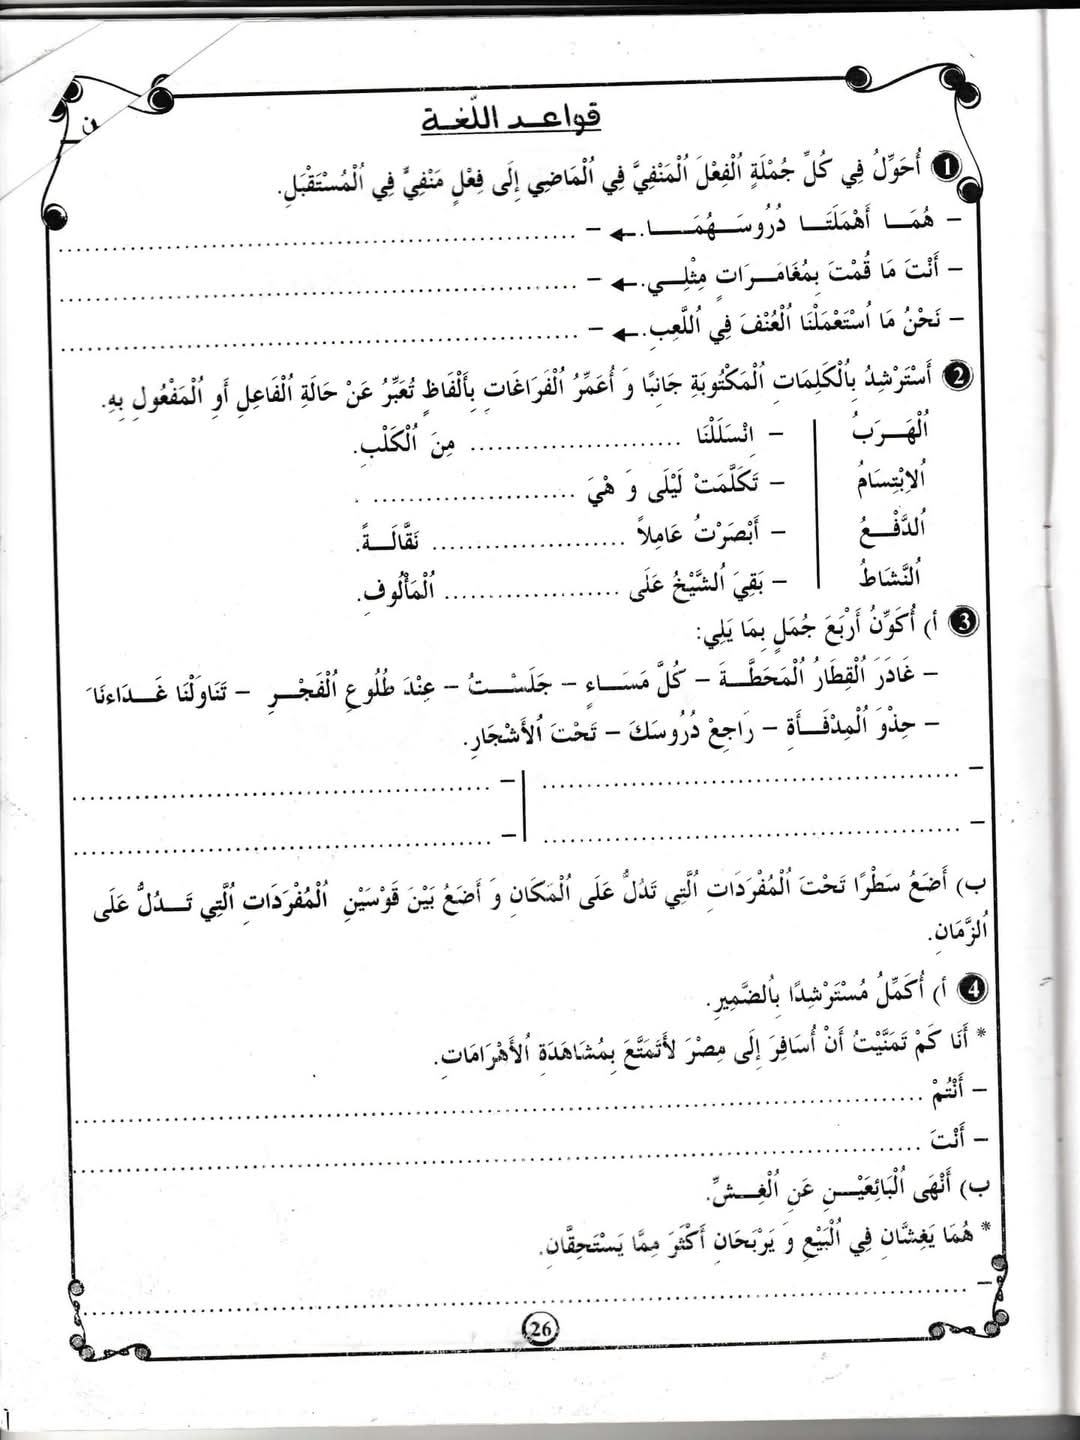 ن
قواعد اللّغة
1 أُحَوِّلُ فِي كُلِّ جُمْلَةٍ اُلْفِعْلَ اُلْمَنْفِيَّ فِي اُلْمَاضِي إِلَى فِعْلٍ مَنْفِيٍّ فِي اُلْمُسْتَقْبَلِ.
- هُمَا أَهْمَلَتَا دُرُوسَهُمَا. ← - ..............................
- أَنْتَ مَا قُمْتَ بِمُغَامَرَاتٍ مِثْلِي. ← - ..............................
- نَحْنُ مَا اُسْتَعْمَلْنَا اُلْعُنْفَ فِي اُللَّعِبِ. ← - ..............................
2 أَسْتَرْشِدُ بِاُلْكَلِمَاتِ اُلْمَكْتُوبَةِ جَانِبًا وَ أُعَمِّرُ اُلْفَرَاغَاتِ بِأَلْفَاظٍ تُعَبِّرُ عَنْ حَالَةِ اُلْفَاعِلِ أَوِ اُلْمَفْعُولِ بِهِ.
اُلْهَرَبُ - اِنْسَلَلْنَا .................... مِنَ اُلْكَلْبِ.
اُلاِبْتِسَامُ - تَكَلَّمَتْ لَيْلَى وَ هْيَ .................... .
اُلدَّفْعُ - أَبْصَرْتُ عَامِلاً .................... نَقَّالَةً.
اُلنَّشَاطُ - بَقِيَ اُلشَّيْخُ عَلَى .................... اُلْمَأْلُوفِ.
3 أ) أُكَوِّنُ أَرْبَعَ جُمَلٍ بِمَا يَلِي:
- غَادَرَ اُلْقِطَارُ اُلْمَحَطَّةَ - كُلَّ مَسَاءٍ - جَلَسْتُ - عِنْدَ طُلُوعِ اُلْفَجْرِ - تَنَاوَلْنَا غَدَاءنَا
- حِذْوَ اُلْمِدْفَأَةِ - رَاجِعْ دُرُوسَكَ - تَحْتَ اُلأَشْجَارِ.
- .............................. - ..............................
- .............................. - ..............................
ب) أَضَعُ سَطْرًا تَحْتَ اُلْمُفْرَدَاتِ اُلَّتِي تَدُلُّ عَلَى اُلْمَكَانِ وَ أَضَعُ بَيْنَ قَوْسَيْنِ اُلْمُفْرَدَاتِ اُلَّتِي تَدُلُّ عَلَى
اُلزَّمَانِ.
4 أ) أُكَمِّلُ مُسْتَرْشِدًا بِاُلضَّمِيرِ.
* أَنَا كَمْ تَمَنَّيْتُ أَنْ أُسَافِرَ إِلَى مِصْرَ لأَتَمَتَّعَ بِمُشَاهَدَةِ اُلأَهْرَامَاتِ.
- أَنْتُمْ ..............................
- أَنْتَ ..............................
ب) أَنْهَى اُلْبَائِعَيْنِ عَنِ اُلْغِشِّ.
* هُمَا يَغِشَّانِ فِي اُلْبَيْعِ وَ يَرْبَحَانِ أَكْثَرَ مِمَّا يَسْتَحِقَّانِ.
- ..............................
26